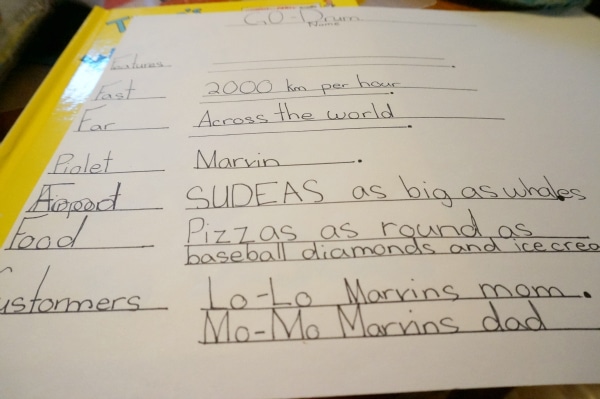 GO-Drum
Name
Features
Fast 2000 km per hour
Far Across the world.
Piolet Marvin.
Airpoort SUDEAS as big as whales
Food Pizzas as round as
baseball diamonds and icecrea
ustormers Lo-Lo Marvins mom.
Mo-Mo Marvins dad